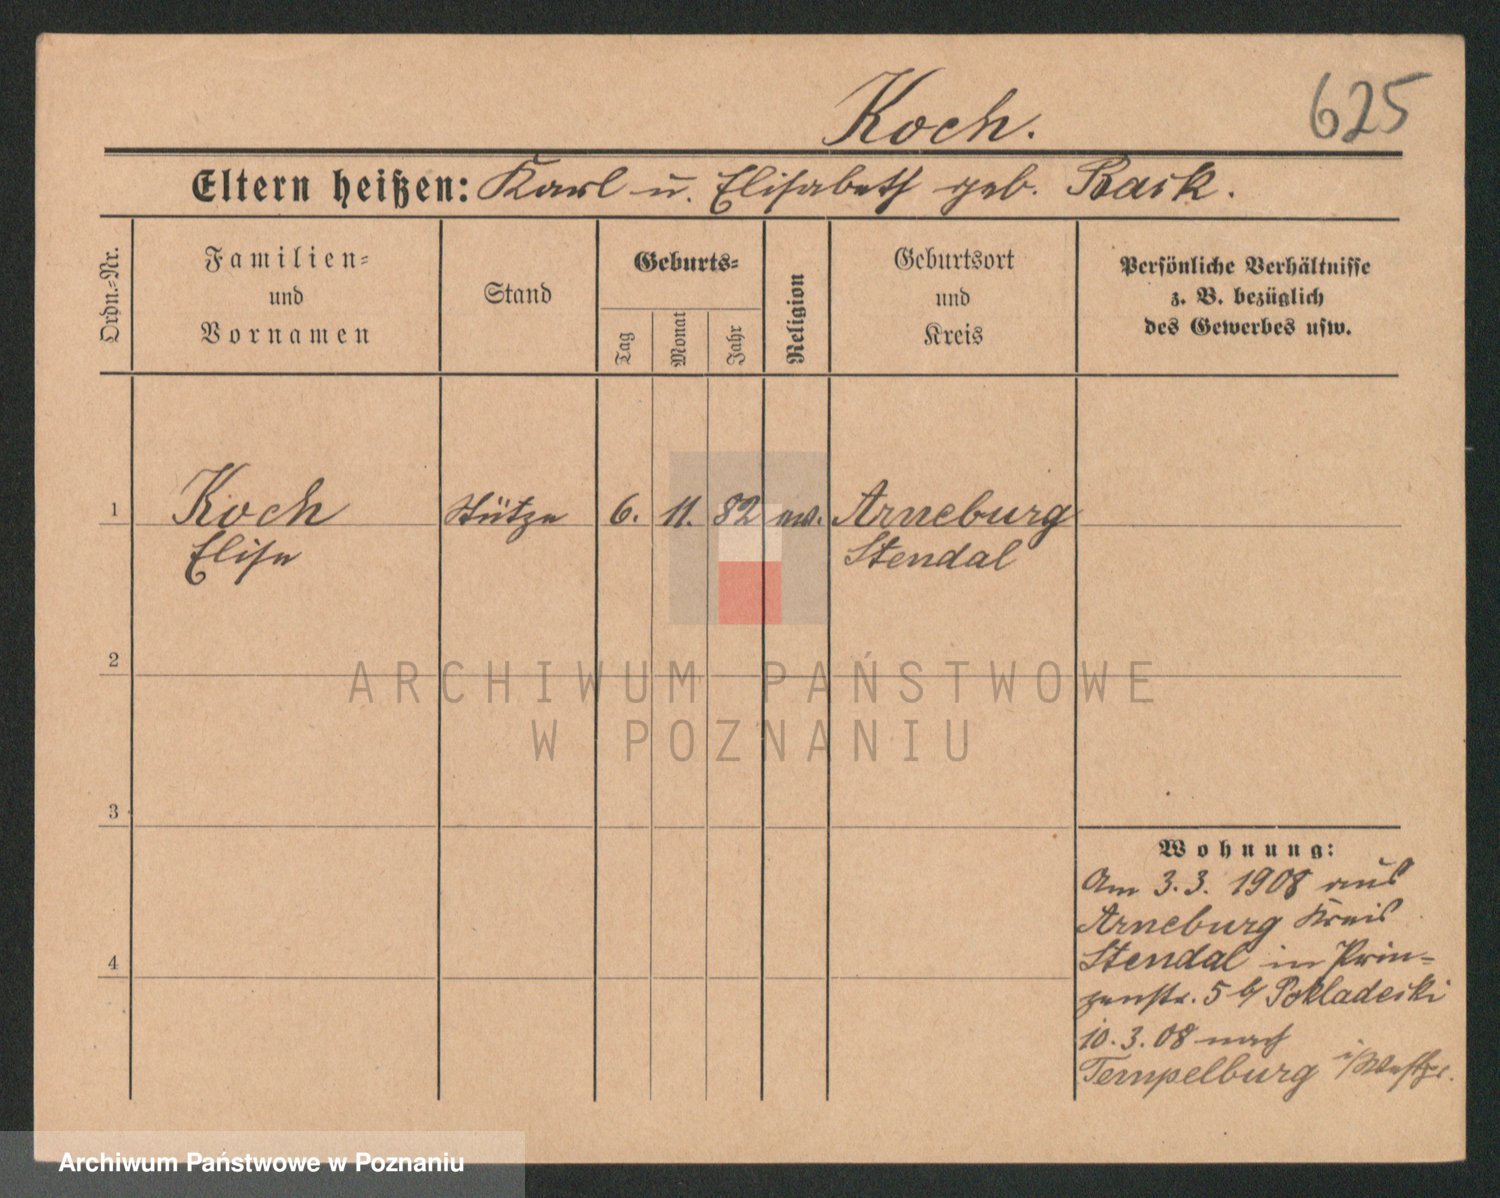 Koch.
625
Eltern heißen: Karl u. Elisabeth geb. Rask.
Ordn.-Nr.
Familien-
und
Vornamen
Stand
Geburts-
Tag
Monat
Jahr
Religion
Geburtsort
und
Kreis
Persönliche Verhältnisse
z. B. bezüglich
des Gewerbes usw.
1
Koch Stütze 6. 11. 82 ev. Arneburg
Elise Stendal
2
ARCHIWUM PAŃSTWOWE
W POZNANIU
3
Wohnung:
Am 3.3. 1908 aus
Arneburg Kreis
Stendal in Prin-
zenstr. 5 b/ Pokladecki
4
10.3.08 nach
Tempelburg i/Westpr.
Archiwum Państwowe w Poznaniu